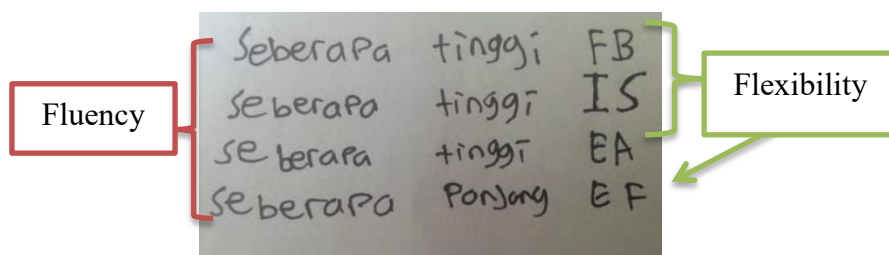 Fluency
Seberapa tinggi FB
seberapa tinggi IS
seberapa tinggi EA
seberapa Panjang EF
Flexibility